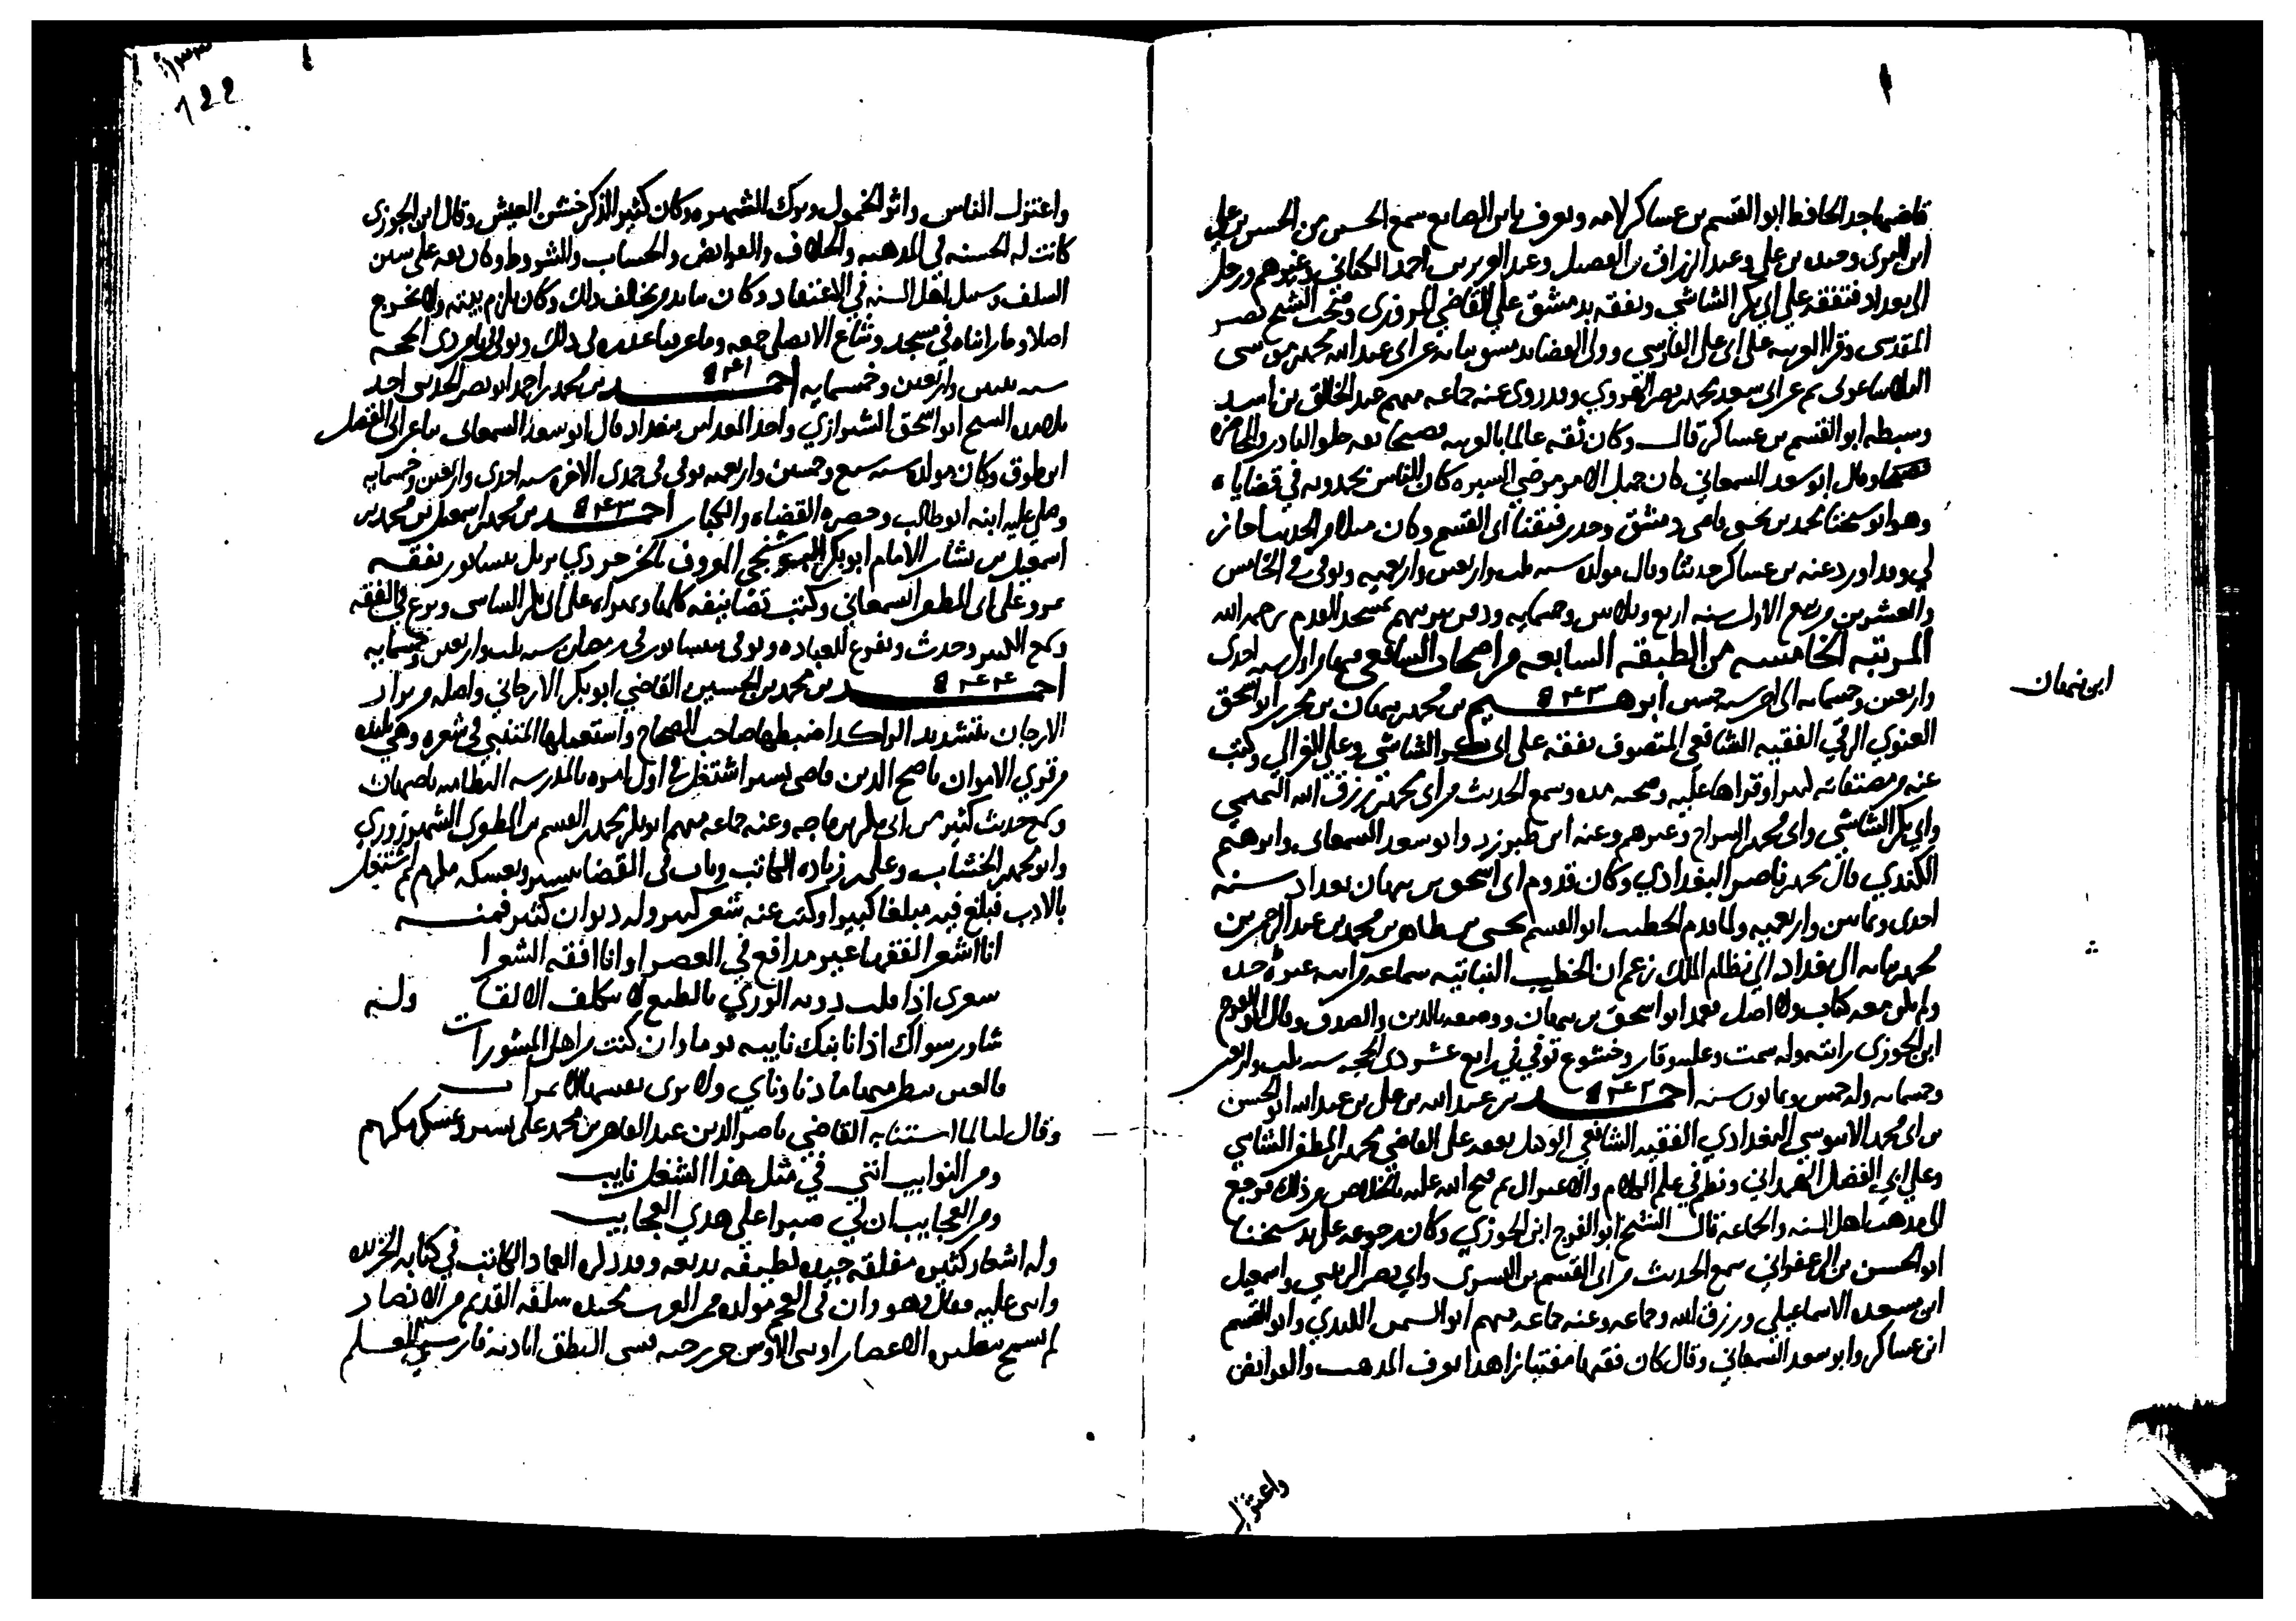 قاضيها جد الحافظ ابو القسم بن عساكر لامه ويعرف بابن الصايغ سمع الحسن من الحسن بن علي
ابن البرى وحيدره بن علي وعبد الرزاق بن الفضيل وعبد العزيز بن احمد الكتاني وغيرهم ورحل
الى بغداد فتفقه على ابي بكر الشاشي وتفقه بدمشق على القاضي المروزى وصحب الشيخ نصر
المقدسى وقرا العربيه على ابى على الفارسى وولى القضا بدمشق نيابه عن ابى عبد الله محمد بن موسى
عن ابى سعد محمد بن نصر الهروي وقد روى عنه جماعه منهم عبد الخالق بن اسد
وسبطه ابو القسم بن عساكر قال وكان ثقه عالما بالعربيه فصيحا ثقه حلو النادره والمحاضره
وقال ابو سعد السمعاني كان جميل الامر مرضي السيره كان الناس يحمدونه في قضاياه
وهو ابو شيخنا محمد بن يحيى قاضى دمشق وجد رفيقنا ابى القسم وكان الحديث اجاز
لي وقد اورد عنه بن عساكر حديثا وقال مولده سنه ثلث واربعين واربعميه وتوفى في الخامس
والعشرين من ربيع الاول سنه اربع وثلاثين وخمسمايه ودفن بمسجد القدم رحمه الله
المرتبه الخامسه من الطبقه السابعه من اصحاب الشافعى فيها من اول سنه احدى
واربعين وخمسمايه الى اخر سنه خمسين ابرهيم بن محمد بن نبهان بن محرز ابو اسحق
ابن نبهان
الغنوي الرقي الفقيه الشافعى المتصوف تفقه على ابى بكر الشاشي وعلى الغزالي وكتب
عنه من مصنفاته كثيرا وقراها عليه وصحبه مده وسمع الحديث من ابى محمد رزق الله التميمي
وابي بكر الشاشى وابى محمد السراج وغيرهم وعنه ابن طبرزد وابو سعد السمعانى وابو هم
الكندي قال محمد بن ناصر البغدادي وكان قدوم ابى اسحق بن نبهان بغداد سنه
احدى وثمانين واربعميه ولما قدم الخطيب ابو القسم يحيى بن طاهر بن محمد بن عبد الرحمن بن
محمد بن نباته الى بغداد الى نظام الملك زعم ان الخطب النباتيه سماعه من ابيه عن جده
ولم يكن معه كتاب ولا اصل فعمد ابو اسحق بن نبهان ووصفه بالدين والصدق وقال ابو الفرج
ابن الجوزى رايته وله سمت وعليه وقار وخشوع توفي في رابع عشر ذى الحجه سنه ثلث واربعين
وخمسمايه وله خمس وثمانون سنه احمد بن عبد الله بن علي بن عبد الله ابو الحسن
بن ابى محمد الابنوسي البغدادي الفقيه الشافعي الوكيل تفقه على القاضي محمد بن المظفر الشامي
وعلى ابي الفضل الهمداني ونظر في علم الكلام والاعتزال ثم فتح الله عليه بالخلاص من ذلك فرجع
الى مذهب اهل السنه والجماعه قال الشيخ ابو الفرج ابن الجوزي وكان رجوعه على يد شيخنا
ابو الحسن بن الزعفراني سمع الحديث من ابى القسم بن البسرى وابي نصر الزينبي واسمعيل
ابن مسعده الاسماعيلي ورزق الله وجماعه وعنه جماعه منهم ابو اليمن الكندي وابو القسم
ابن عساكر وابو سعد السمعاني وقال كان فقيها مفتيا زاهدا يعرف المذهب والفرائض
واعتزل
١٣٣
122
واعتزل الناس واثر الخمول وترك الشهره وكان كثير الذكر خشن العيش وقال ابن الجوزى
كانت له الحسنه في المذهب والخلاف والفرائض والحساب والشروط وكان ثقه على سنن
السلف وسبيل اهل السنه في الاعتقاد وكان ينابذ من يخالف ذلك وكان يلزم بيته ولا يخرج
اصلا وما رايناه في مسجد وشاع الا يصلى جمعه وما عرفنا عذره فى ذلك وتوفى فى ذى الحجه
سنه ثنتين واربعين وخمسمايه احمد بن محمد بن احمد ابو نصر الحديثى احد
تلامذه الشيخ ابو اسحق الشيرازي واحد المعدلين ببغداد قال ابو سعد السمعانى ثنا عن ابى الفضل
ابن طوق وكان مولده سنه سبع وخمسين واربعميه توفي فى جمدى الاخره سنه احدى واربعين وخمسمايه
وصلى عليه ابنه ابو طالب وحضره القضاه والكبار احمد بن محمد بن اسمعيل بن محمد بن
اسمعيل بن بشار الامام ابو بكر البوشنجي المعروف بالخرجردي نزيل نيسابور تفقه
بمرو على ابى المظفر السمعاني وكتب تصانيفه كلها وعلى ابى بكر الشاشى وبرع في الفقه
وسمع الكثير وحدث وتفرغ للعباده وتوفى بنيسابور فى رمضان سنه ثلث واربعين وخمسمايه
احمد بن محمد بن الحسين القاضي ابو بكر الارجاني واصله من
الارجان بتشديد الراء كذا ضبطها صاحب الصحاح واستعملها المتنبي في شعره وهي بلده
من قري الاهواز ناصح الدين قاضى تستر اشتغل في اول امره بالمدرسه النظاميه باصبهان
وسمع حديث كثير من ابى بكر بن ماجه وعنه جماعه منهم ابو بكر محمد بن القسم بن المظفر الشهرزوري
وابو محمد الخشاب وعلى بن زياده الكاتب وناب فى القضا بتستر وبعسكر مكرم ثم اشتغل
بالادب فبلغ فيه مبلغا كبيرا وكتب عنه شعر كثير وله ديوان كثير فمنه
انا اشعر الفقها غير مدافع في العصر او انا افقه الشعرا
شعرى اذا ما قلت دونه الورى بالطبع لا بتكلف الالقا وله
شاور سواك اذا نابتك نايبه يوما وان كنت من اهل المشورات
فالعين تنظر منها ما دنا ونأي ولا ترى نفسها الا بمراة
وقال ايضا لما استنابه القاضي ناصر الدين عبد القاهر بن محمد على تستر وعسكر مكرم
ومن النوايب انني في مثل هذا الشغل نايب
ومن العجايب ان لي صبرا على هذي العجايب
وله اشعار كثيره مفلقه جيده لطيفه بديعه وقد ذكره العماد الكاتب في كتابه الخريده
واثنى عليه فقال هو وان كان فى العجم مولده فمن العرب محتده سلفه القديم من الانصار
لم تسمح بنظيره الاعصار اوسى الاوس خزرجيه قسى النطق اياديه فارسي القلم